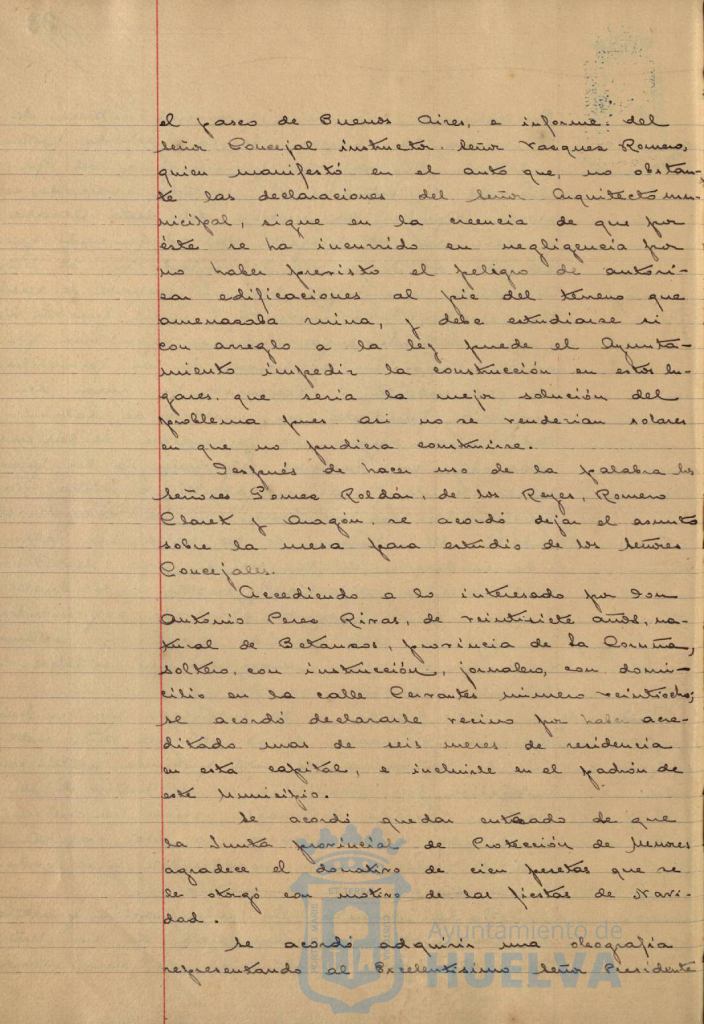 el paseo de Buenos Aires, e informe del
Señor Concejal instructor Señor Vazquez Romero,
quien manifestó en el auto que, no obstan-
te las declaraciones del Señor Arquitecto mu-
nicipal, sigue en la creencia de que por
éste se ha incurrido en negligencia por
no haber previsto el peligro de autori-
zar edificaciones al pie del terreno que
amenazaba ruina, y debe estudiarse si
con arreglo a la ley puede el Ayunta-
miento impedir la construcción en estos lu-
gares que seria la mejor solución del
problema pues asi no se venderian solares
en que no pudiera construirse.
Después de hacer uso de la palabra los
Señores Gomez Roldán, de los Reyes, Romero
Claret y Aragón, se acordó dejar el asunto
sobre la mesa para estudio de los Señores
Concejales.
Accediendo a lo interesado por Don
Antonio Perez Rivas, de veintisiete años, na-
tural de Betanzos, provincia de La Coruña,
soltero, con instrucción, jornalero, con domi-
cilio en la calle Cervantes número veintiocho;
se acordó declararle vecino por haber acre-
ditado mas de seis meses de residencia
en esta capital, e incluirle en el padrón de
este Municipio.
Se acordó quedar enterado de que
la Junta provincial de Protección de Menores
agradece el donativo de cien pesetas que se
le otorgó con motivo de las fiestas de Navi-
dad.
Se acordó adquirir una oleografía
representando al Excelentísimo Señor Presidente
Ayuntamiento de
HUELVA